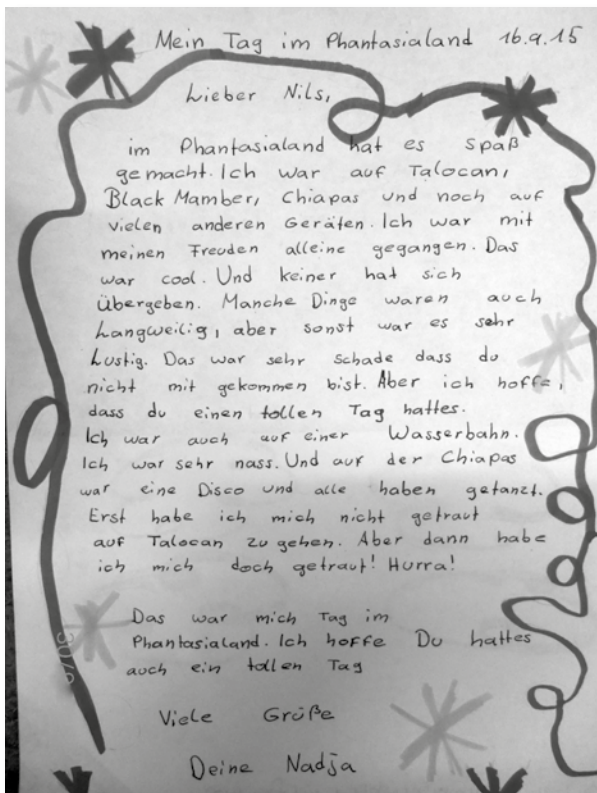 Mein Tag im Phantasialand 16.9.15
Lieber Nils,
im Phantasialand hat es Spaß
gemacht. Ich war auf Talocan,
Black Mamber, Chiapas und noch auf
vielen anderen Geräten. Ich war mit
meinen Freuden alleine gegangen. Das
war cool. Und keiner hat sich
Übergeben. Manche Dinge waren auch
Langweilig, aber sonst war es sehr
Lustig. Das war sehr schade dass du
nicht mit gekommen bist. Aber ich hoffe,
dass du einen tollen Tag hattes.
Ich war auch auf einer Wasserbahn.
Ich war sehr nass. Und auf der Chiapas
war eine Disco und alle haben getanzt.
Erst habe ich mich nicht getraut
auf Talocan zu gehen. Aber dann habe
ich mich doch getraut! Hurra!
Das war mich Tag im
Phantasialand. Ich hoffe Du hattes
auch ein tollen Tag
Viele Grüße
Deine Nadja